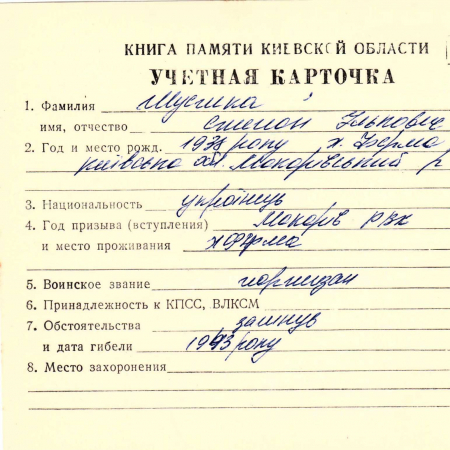 КНИГА ПАМЯТИ КИЕВСКОЙ ОБЛАСТИ
УЧЕТНАЯ КАРТОЧКА
1. Фамилия
имя, отчество Степан
2. Год и место рожд. року х. Ферма
Київська обл. Макарівський р
3. Национальность українець
4. Год призыва (вступления) Макарів РВК
и место проживания х Ферма
5. Воинское звание партизан
6. Принадлежность к КПСС, ВЛКСМ
7. Обстоятельства загинув
и дата гибели 1943 року
8. Место захоронения